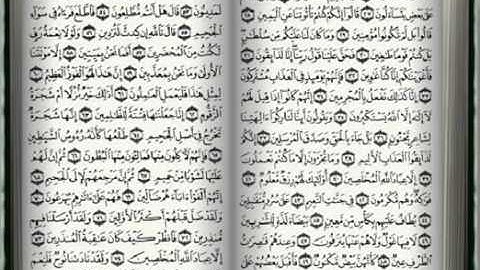 عَلَىٰ بَعْضٍ يَتَسَاءَلُونَ ٢٧ قَالُوا إِنَّكُمْ كُنتُمْ تَأْتُونَنَا عَنِ الْيَمِينِ ٢٨
قَالُوا بَل لَّمْ تَكُونُوا مُؤْمِنِينَ ٢٩ وَمَا كَانَ لَنَا عَلَيْكُم مِّن سُلْطَانٍ
بَلْ كُنتُمْ قَوْمًا طَاغِينَ ٣٠ فَحَقَّ عَلَيْنَا قَوْلُ رَبِّنَا إِنَّا لَذَائِقُونَ ٣١
فَأَغْوَيْنَاكُمْ إِنَّا كُنَّا غَاوِينَ ٣٢ فَإِنَّهُمْ يَوْمَئِذٍ فِي الْعَذَابِ مُشْتَرِكُونَ
٣٣ إِنَّا كَذَٰلِكَ نَفْعَلُ بِالْمُجْرِمِينَ ٣٤ إِنَّهُمْ كَانُوا إِذَا قِيلَ لَهُمْ
لَا إِلَٰهَ إِلَّا اللَّهُ يَسْتَكْبِرُونَ ٣٥ وَيَقُولُونَ أَئِنَّا لَتَارِكُو آلِهَتِنَا
لِشَاعِرٍ مَّجْنُونٍ ٣٦ بَلْ جَاءَ بِالْحَقِّ وَصَدَّقَ الْمُرْسَلِينَ ٣٧ إِنَّكُمْ
لَذَائِقُو الْعَذَابِ الْأَلِيمِ ٣٨ وَمَا تُجْزَوْنَ إِلَّا مَا كُنتُمْ تَعْمَلُونَ
٣٩ إِلَّا عِبَادَ اللَّهِ الْمُخْلَصِينَ ٤٠ أُولَٰئِكَ لَهُمْ رِزْقٌ مَّعْلُومٌ ٤١
فَوَاكِهُ وَهُم مُّكْرَمُونَ ٤٢ فِي جَنَّاتِ النَّعِيمِ ٤٣ عَلَىٰ سُرُرٍ مُّتَقَابِلِينَ
٤٤ يُطَافُ عَلَيْهِم بِكَأْسٍ مِّن مَّعِينٍ ٤٥ بَيْضَاءَ لَذَّةٍ لِّلشَّارِبِينَ
٤٦ لَا فِيهَا غَوْلٌ وَلَا هُمْ عَنْهَا يُنزَفُونَ ٤٧ وَعِندَهُمْ قَاصِرَاتُ
الطَّرْفِ عِينٌ ٤٨ كَأَنَّهُنَّ بَيْضٌ مَّكْنُونٌ ٤٩ فَأَقْبَلَ بَعْضُهُمْ عَلَىٰ
لَمَدِينُونَ ٥٣ قَالَ هَلْ أَنتُم مُّطَّلِعُونَ ٥٤ فَاطَّلَعَ فَرَآهُ فِي سَوَاءِ
الْجَحِيمِ ٥٥ قَالَ تَاللَّهِ إِن كِدتَّ لَتُرْدِينِ ٥٦ وَلَوْلَا نِعْمَةُ رَبِّي
لَكُنتُ مِنَ الْمُحْضَرِينَ ٥٧ أَفَمَا نَحْنُ بِمَيِّتِينَ ٥٨ إِلَّا مَوْتَتَنَا
الْأُولَىٰ وَمَا نَحْنُ بِمُعَذَّبِينَ ٥٩ إِنَّ هَٰذَا لَهُوَ الْفَوْزُ الْعَظِيمُ ٦٠
لِمِثْلِ هَٰذَا فَلْيَعْمَلِ الْعَامِلُونَ ٦١ أَذَٰلِكَ خَيْرٌ نُّزُلًا أَمْ شَجَرَةُ
الزَّقُّومِ ٦٢ إِنَّا جَعَلْنَاهَا فِتْنَةً لِّلظَّالِمِينَ ٦٣ إِنَّهَا شَجَرَةٌ
تَخْرُجُ فِي أَصْلِ الْجَحِيمِ ٦٤ طَلْعُهَا كَأَنَّهُ رُءُوسُ الشَّيَاطِينِ
٦٥ فَإِنَّهُمْ لَآكِلُونَ مِنْهَا فَمَالِئُونَ مِنْهَا الْبُطُونَ ٦٦ ثُمَّ إِنَّ لَهُمْ
عَلَيْهَا لَشَوْبًا مِّنْ حَمِيمٍ ٦٧ ثُمَّ إِنَّ مَرْجِعَهُمْ لَإِلَى الْجَحِيمِ
٦٨ إِنَّهُمْ أَلْفَوْا آبَاءَهُمْ ضَالِّينَ ٦٩ فَهُمْ عَلَىٰ آثَارِهِمْ يُهْرَعُونَ ٧٠
وَلَقَدْ ضَلَّ قَبْلَهُمْ أَكْثَرُ الْأَوَّلِينَ ٧١ وَلَقَدْ أَرْسَلْنَا فِيهِم
مُّنذِرِينَ ٧٢ فَانظُرْ كَيْفَ كَانَ عَاقِبَةُ الْمُنذَرِينَ ٧٣
إِلَّا عِبَادَ اللَّهِ الْمُخْلَصِينَ ٧٤ وَلَقَدْ نَادَانَا نُوحٌ فَلَنِعْمَ